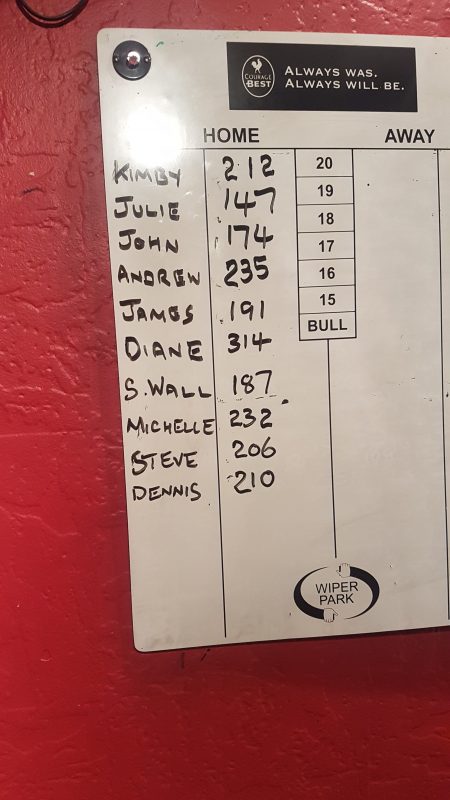 COURAGE BEST
ALWAYS WAS.
ALWAYS WILL BE.
HOME AWAY
KIMBY 212 20
JULIE 147 19
JOHN 174 18
ANDREW 235 17
JAMES 191 16
15
DIANE 314 BULL
S.WALL 187
MICHELLE 232
STEVE 206
DENNIS 210
WIPER
PARK